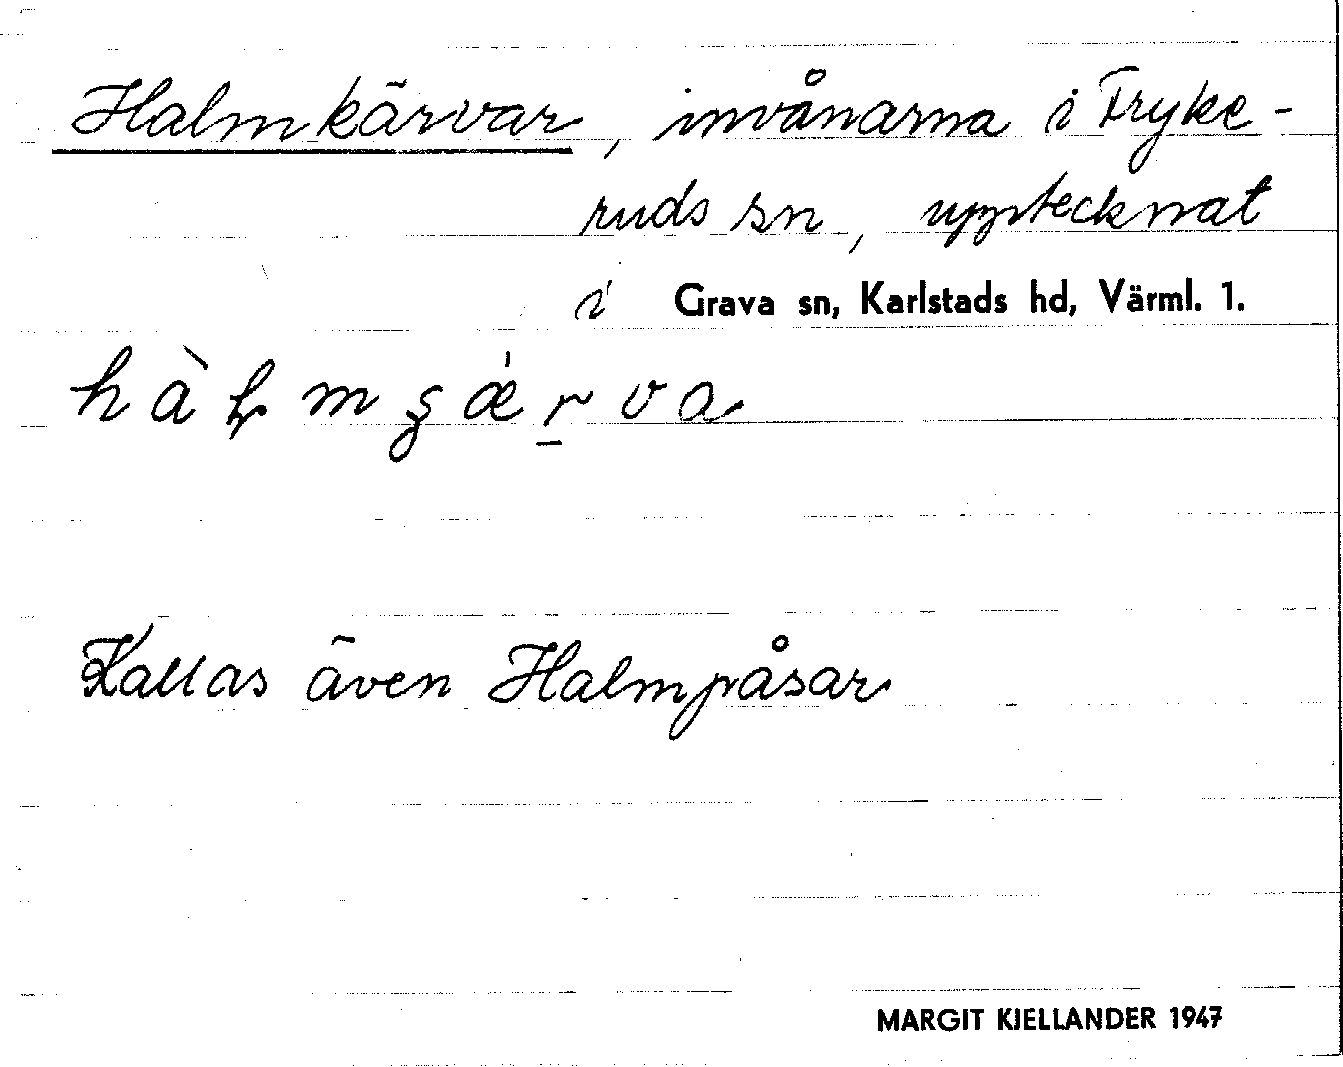 Halmkärvar, invånarna i Fryke-
ruds sn, upptecknat
i Grava sn, Karlstads hd, Värml. l.
Kallas även Halmpåsar
MARGIT KJELLANDER 1947